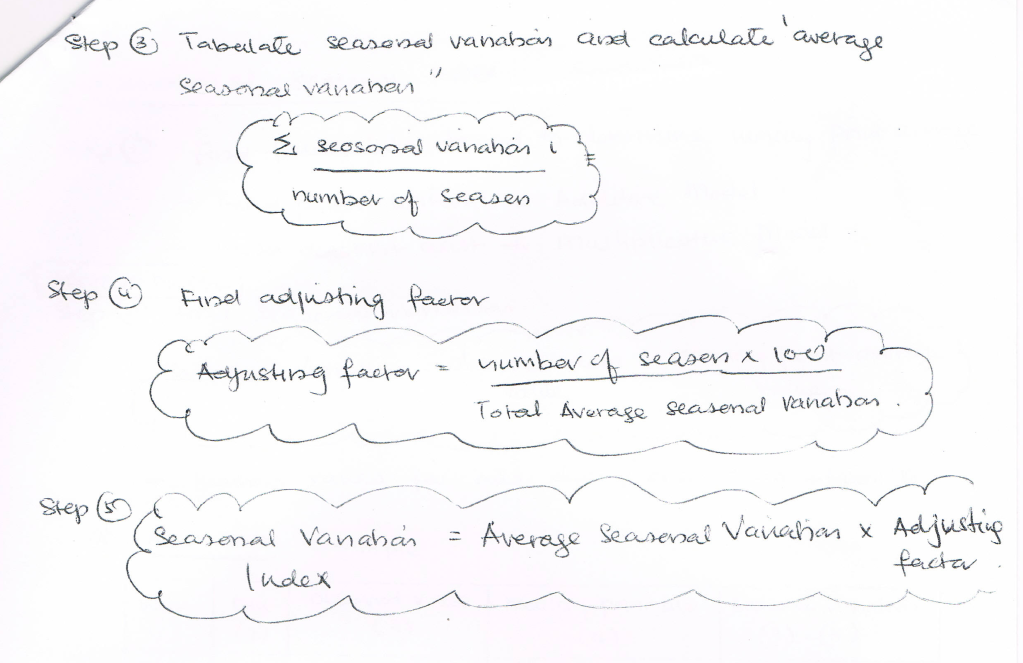 Step ③ Tabulate seasonal variation and calculate "average
seasonal variation"
Σ seasonal variation i =
number of season
Step ④ Find adjusting factor
Adjusting factor = number of season x 100
Total Average seasonal variation.
Step ⑤
Seasonal Variation = Average Seasonal Variation x Adjusting
Index factor.